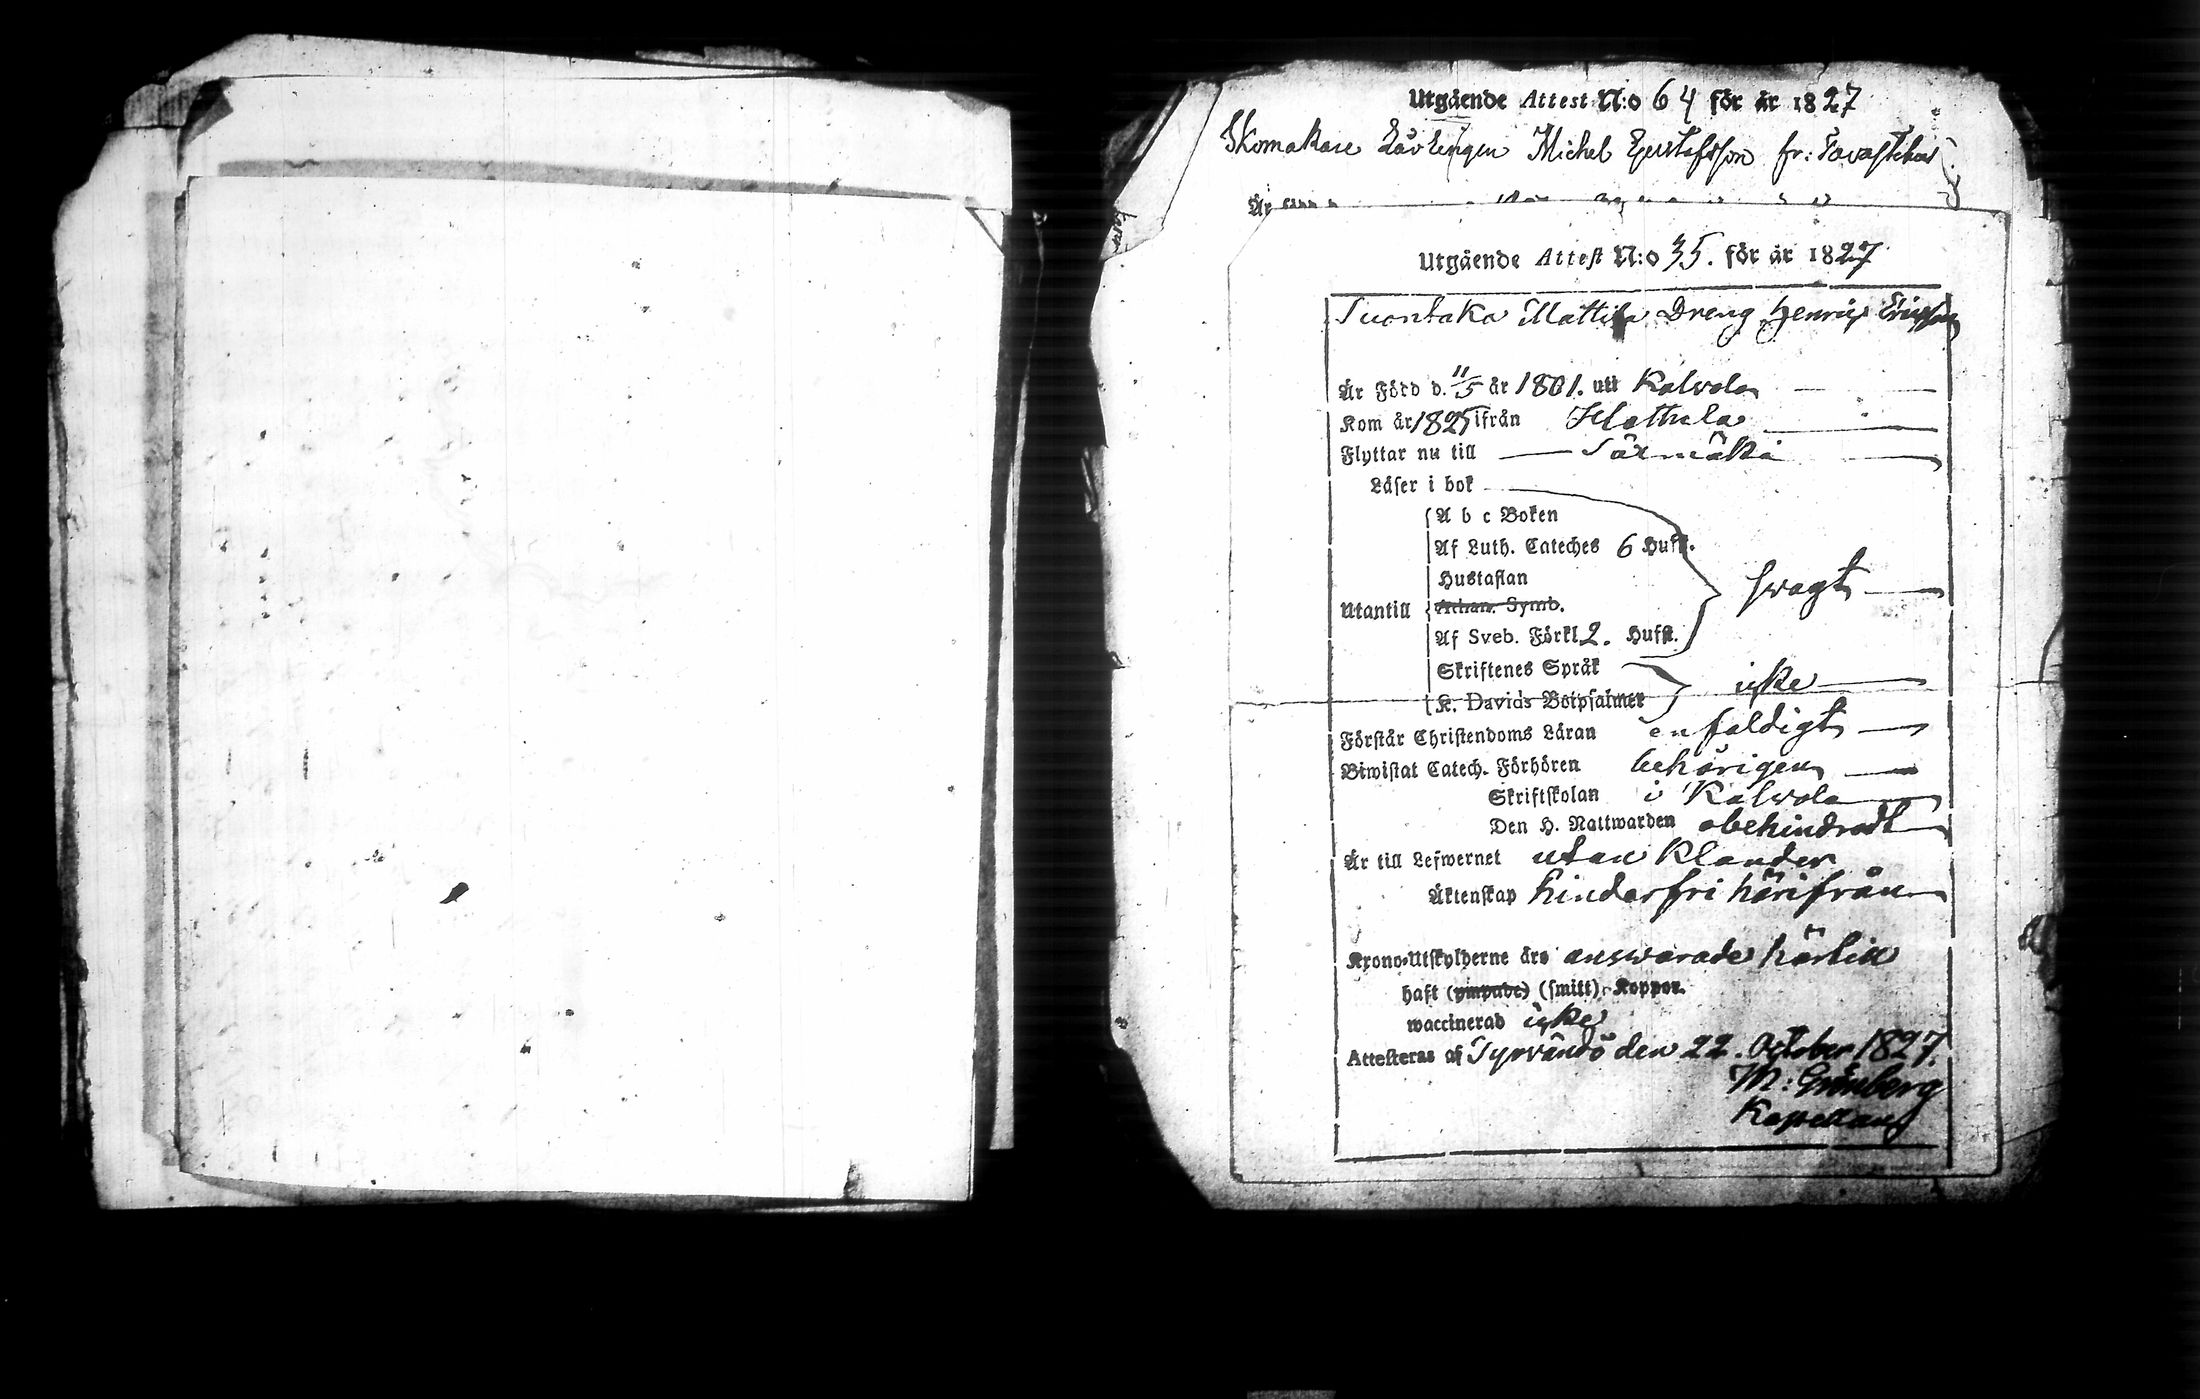 Utgående Attest N:o 64 för år 1827
Skomakare Lärlingen Michel Gustafsson fr: Tavastehus
Utgående Attest N:o 35. för år 1827
Suontaka Mattila Dreng Henrix Ericsson
Är Född d. 11/5 år 1801. uti Kalvola
Kom år 1825 ifrån Hattula
Flyttar nu till Särmäki
Läser i bok
A b c Boken
Af Luth. Cateches 6 Hufst.
Hustaflan
Utantill Athan. Symb. swagt
Af Sveb. Förkl 2. Hufst.
Skriftenes Språk
K. Davids Botpsalmer icke
Förstår Christendoms Läran enfaldigt
Biwistat Catech. Förhören behörigen
Skriftskolan i Kalvola
Den H. Nattwarden obehindradt
Är till Lefwernet utan klander
Äktenskap hinderfri härifrån
Krono-Utskylderne äro answarade härtill
haft (ympade) (smitt) Koppor.
waccinerad icke
Attesteras af Tyrvändö den 22. October 1827.
M: Grönberg
Kapellan